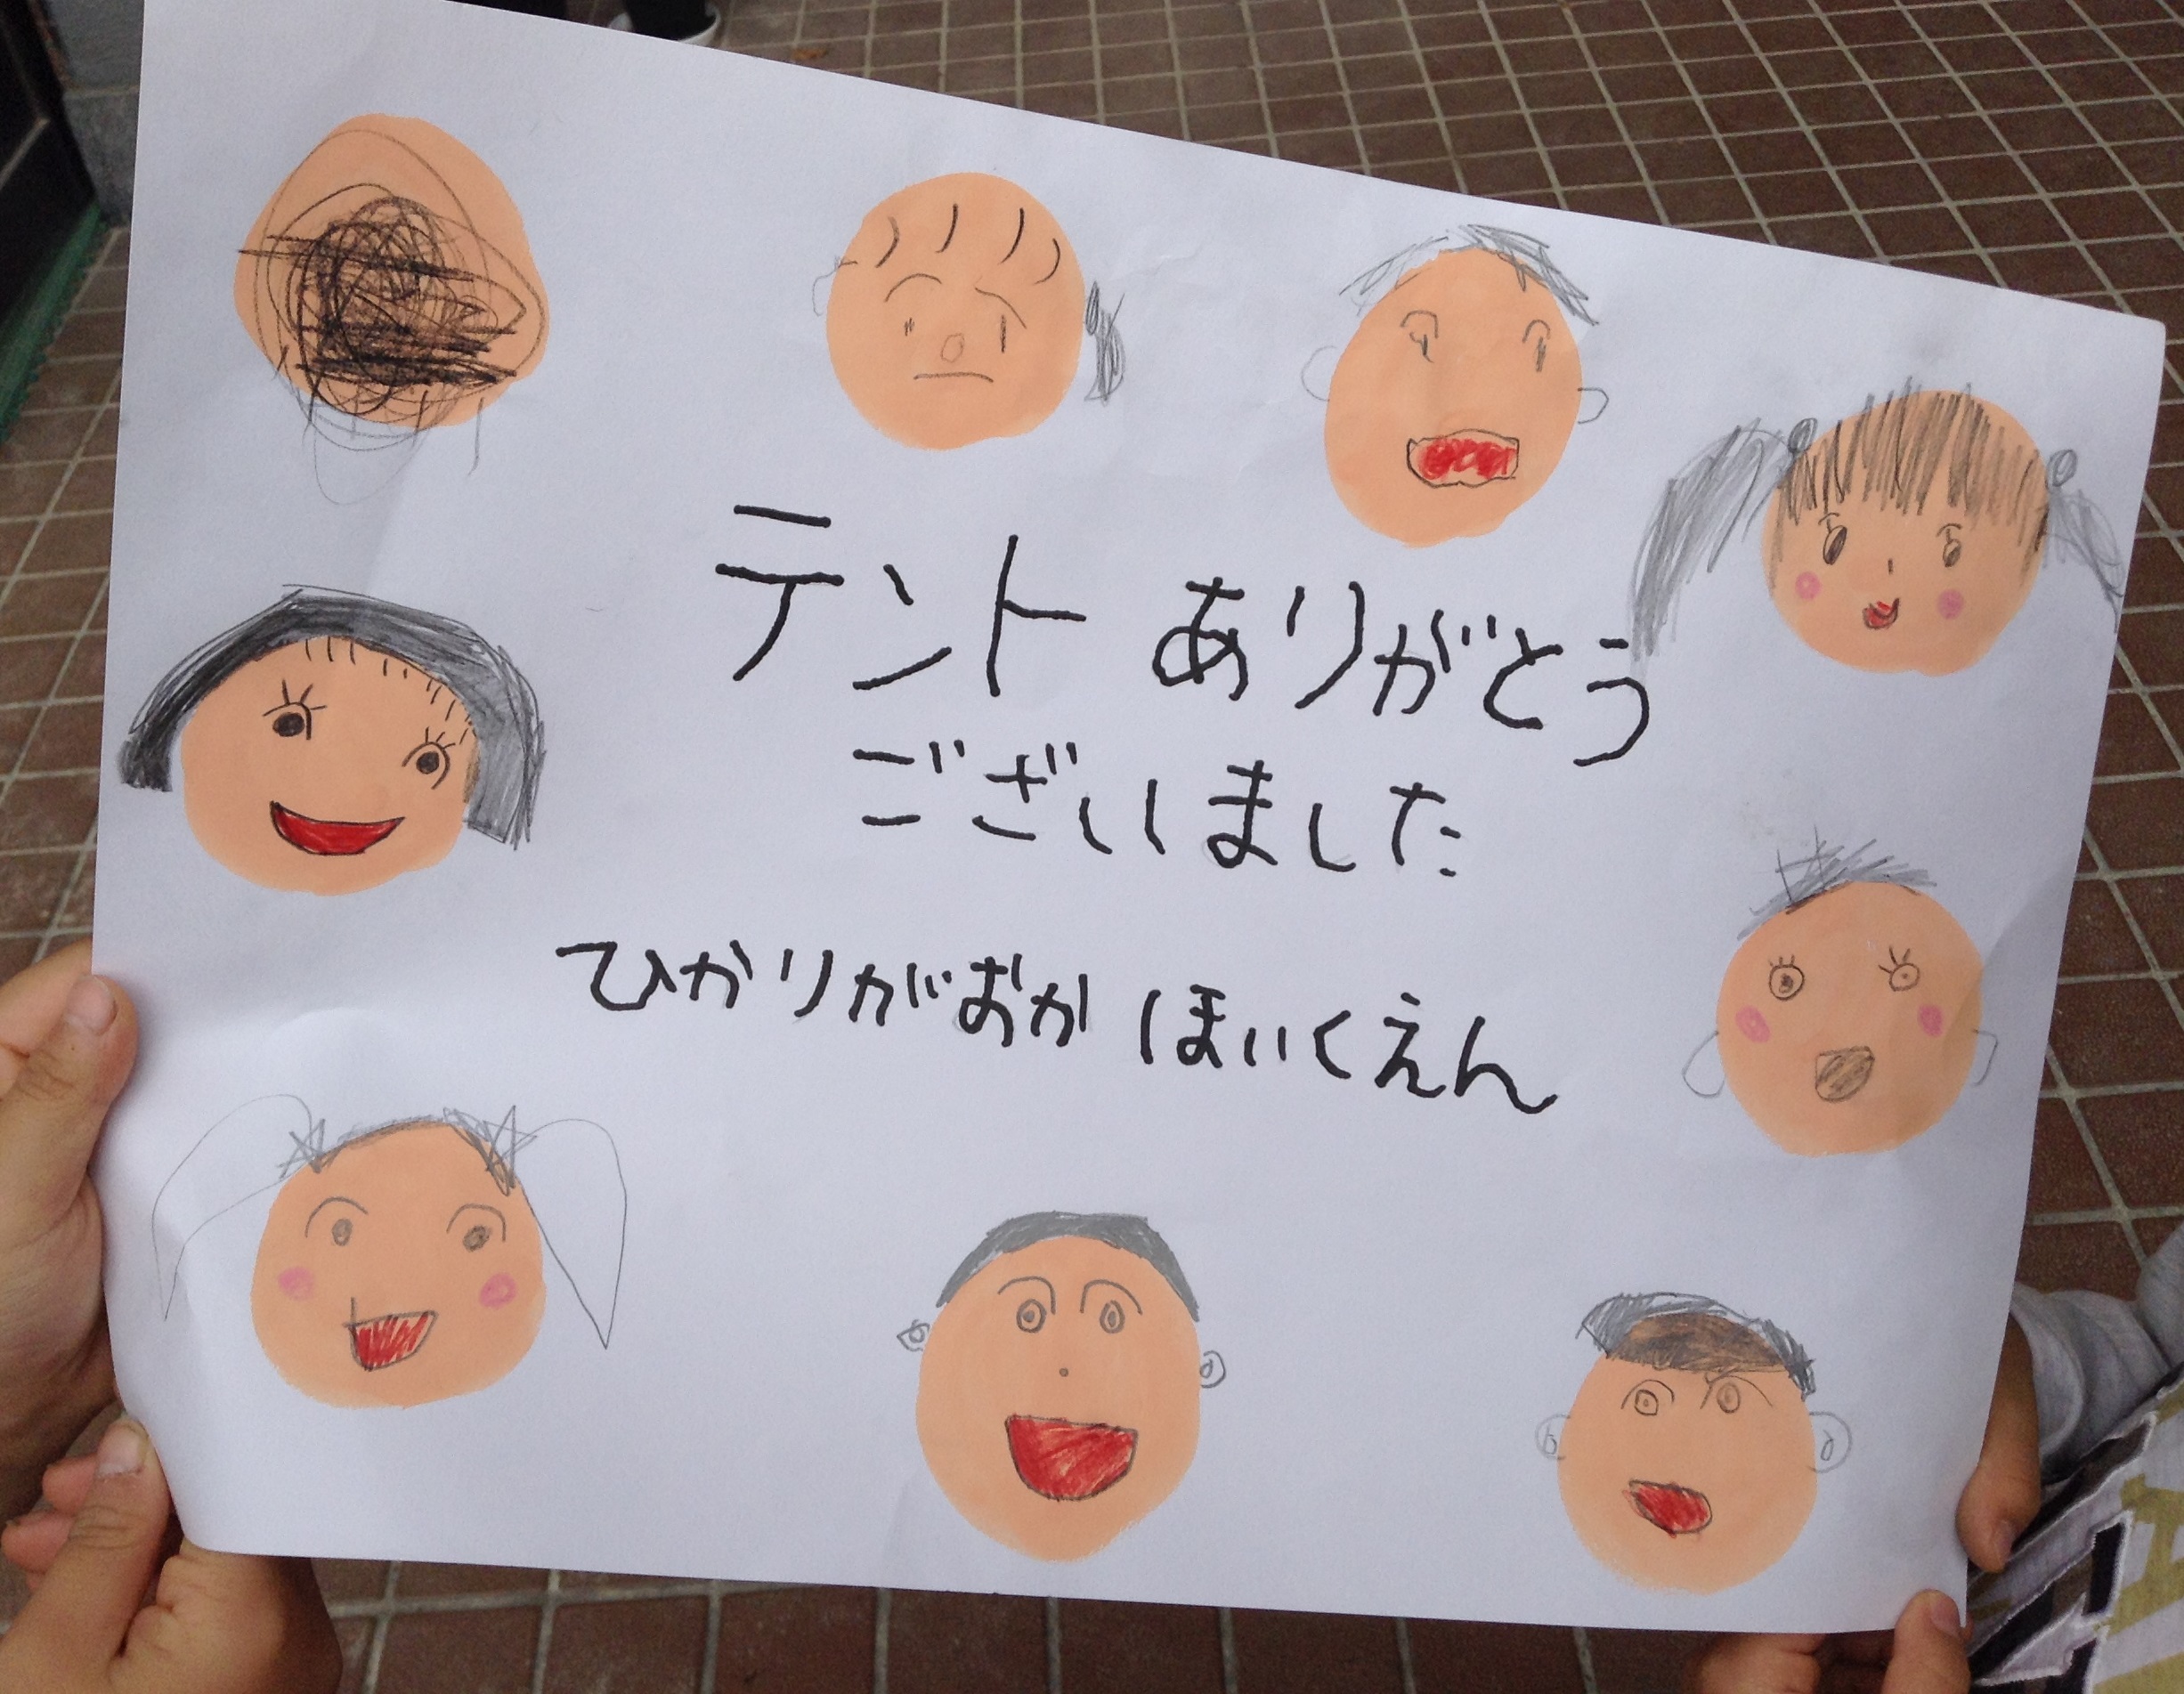 テント ありがとう
ございました
ひかりがおか ほいくえん